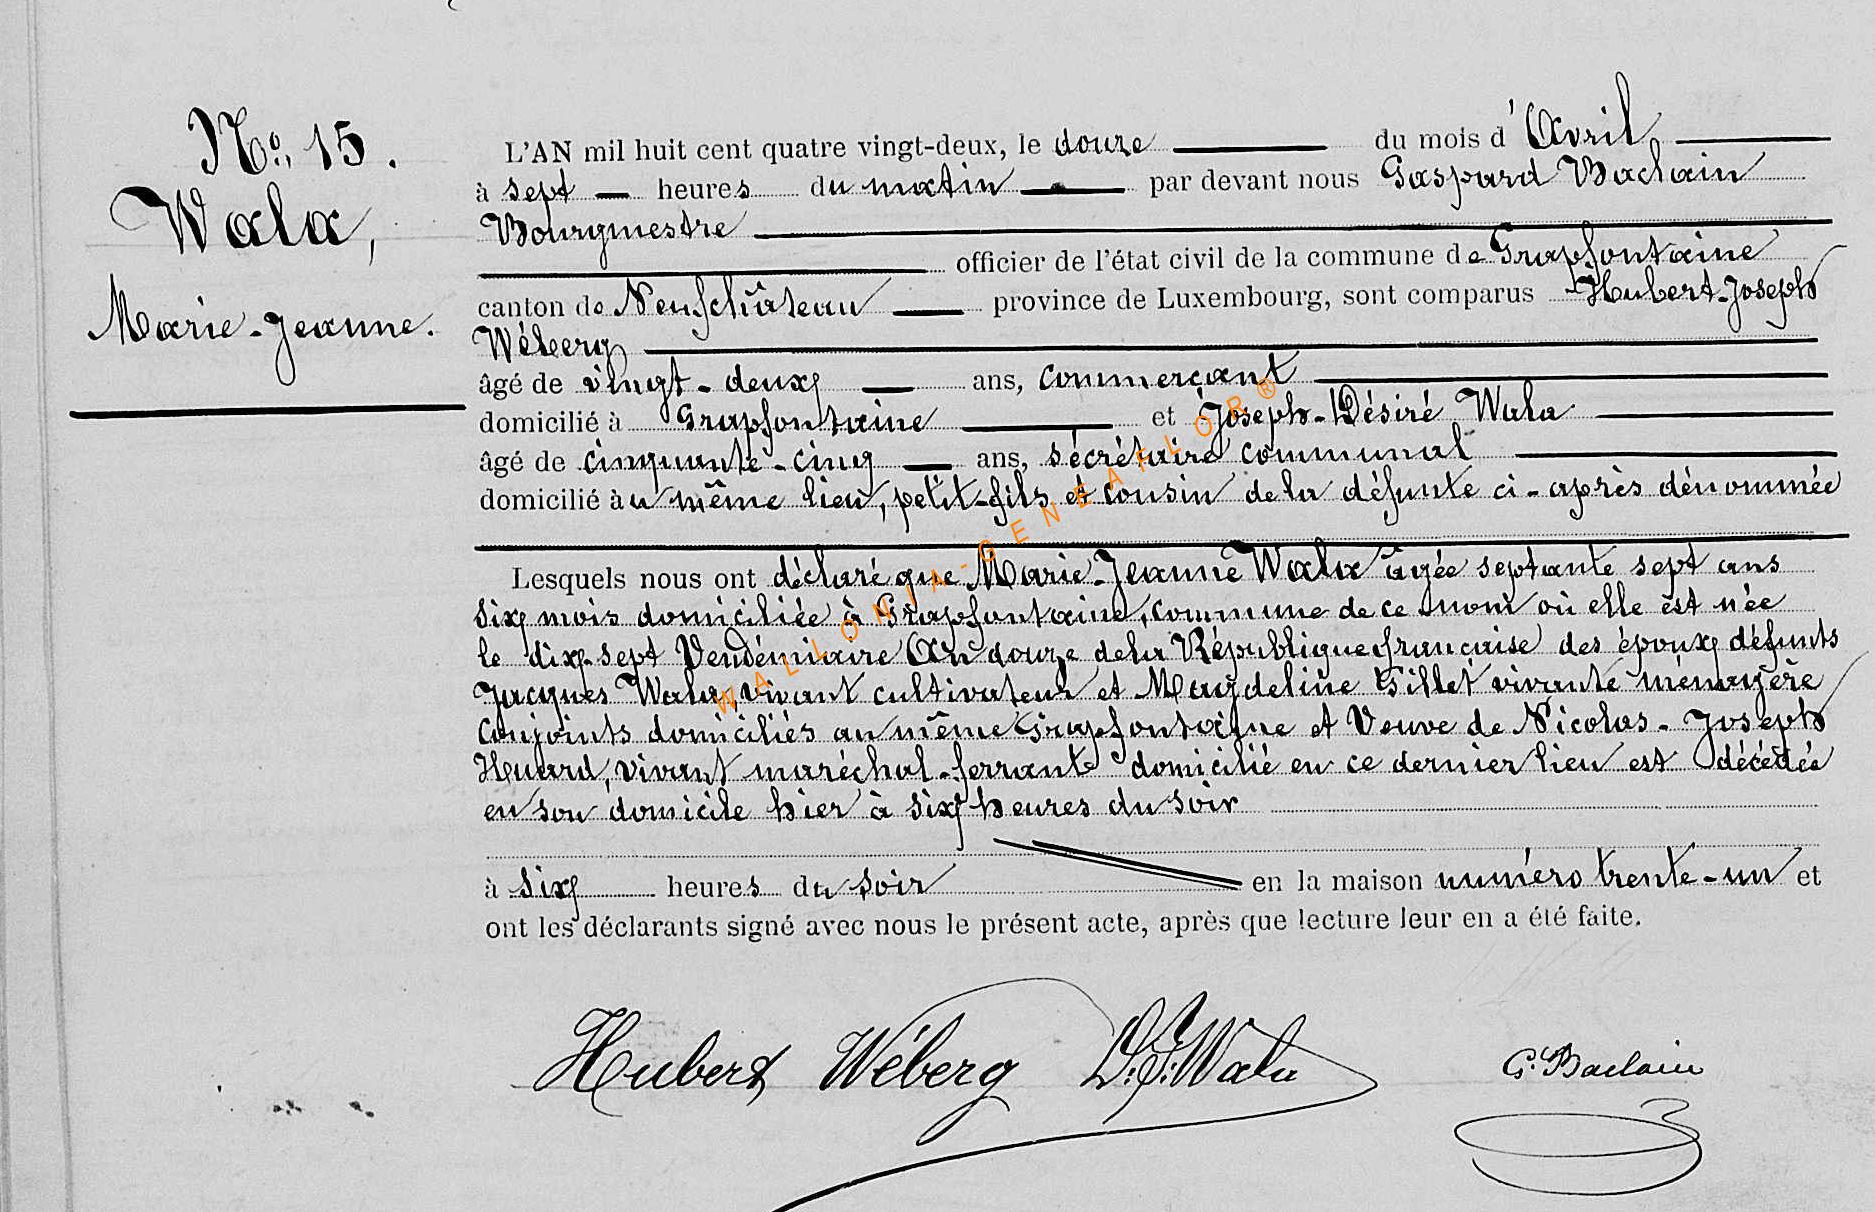 No. 15.
Wala,
Marie-Jeanne.
L'AN mil huit cent quatre vingt-deux, le douze du mois d'Avril,
à sept heures du matin par devant nous Gaspard Baclain
Bourgmestre
officier de l'état civil de la commune de Grapfontaine
canton de Neufchâteau province de Luxembourg, sont comparus Hubert-Joseph
Wéberg
âgé de vingt-deux ans, commerçant
domicilié à Grapfontaine et Joseph-Désiré Wala
âgé de cinquante-cinq ans, sécrétaire communal
domicilié au même lieu, petit-fils et cousin de la défunte ci-après dénommée
Lesquels nous ont déclaré que Marie-Jeanne Wala âgée septante sept ans
six mois domiciliée à Grapfontaine, commune de ce nom où elle est née
le dix-sept Vendémiaire An douze de la République française des époux défunts
Jacques Wala, vivant cultivateur et Magdeline Gillet vivante ménagère
Conjoints domiciliés au même Grapfontaine et Veuve de Nicolas-Joseph
Huard, vivant maréchal-ferrant domicilié en ce dernier lieu est décédée
en son domicile hier à six heures du soir
à six heures du soir en la maison numéro trente-un et
ont les déclarants signé avec nous le présent acte, après que lecture leur en a été faite.
Hubert Wéberg D.J. Wala G. Baclain
WALLONIA-GENEAFLOR®